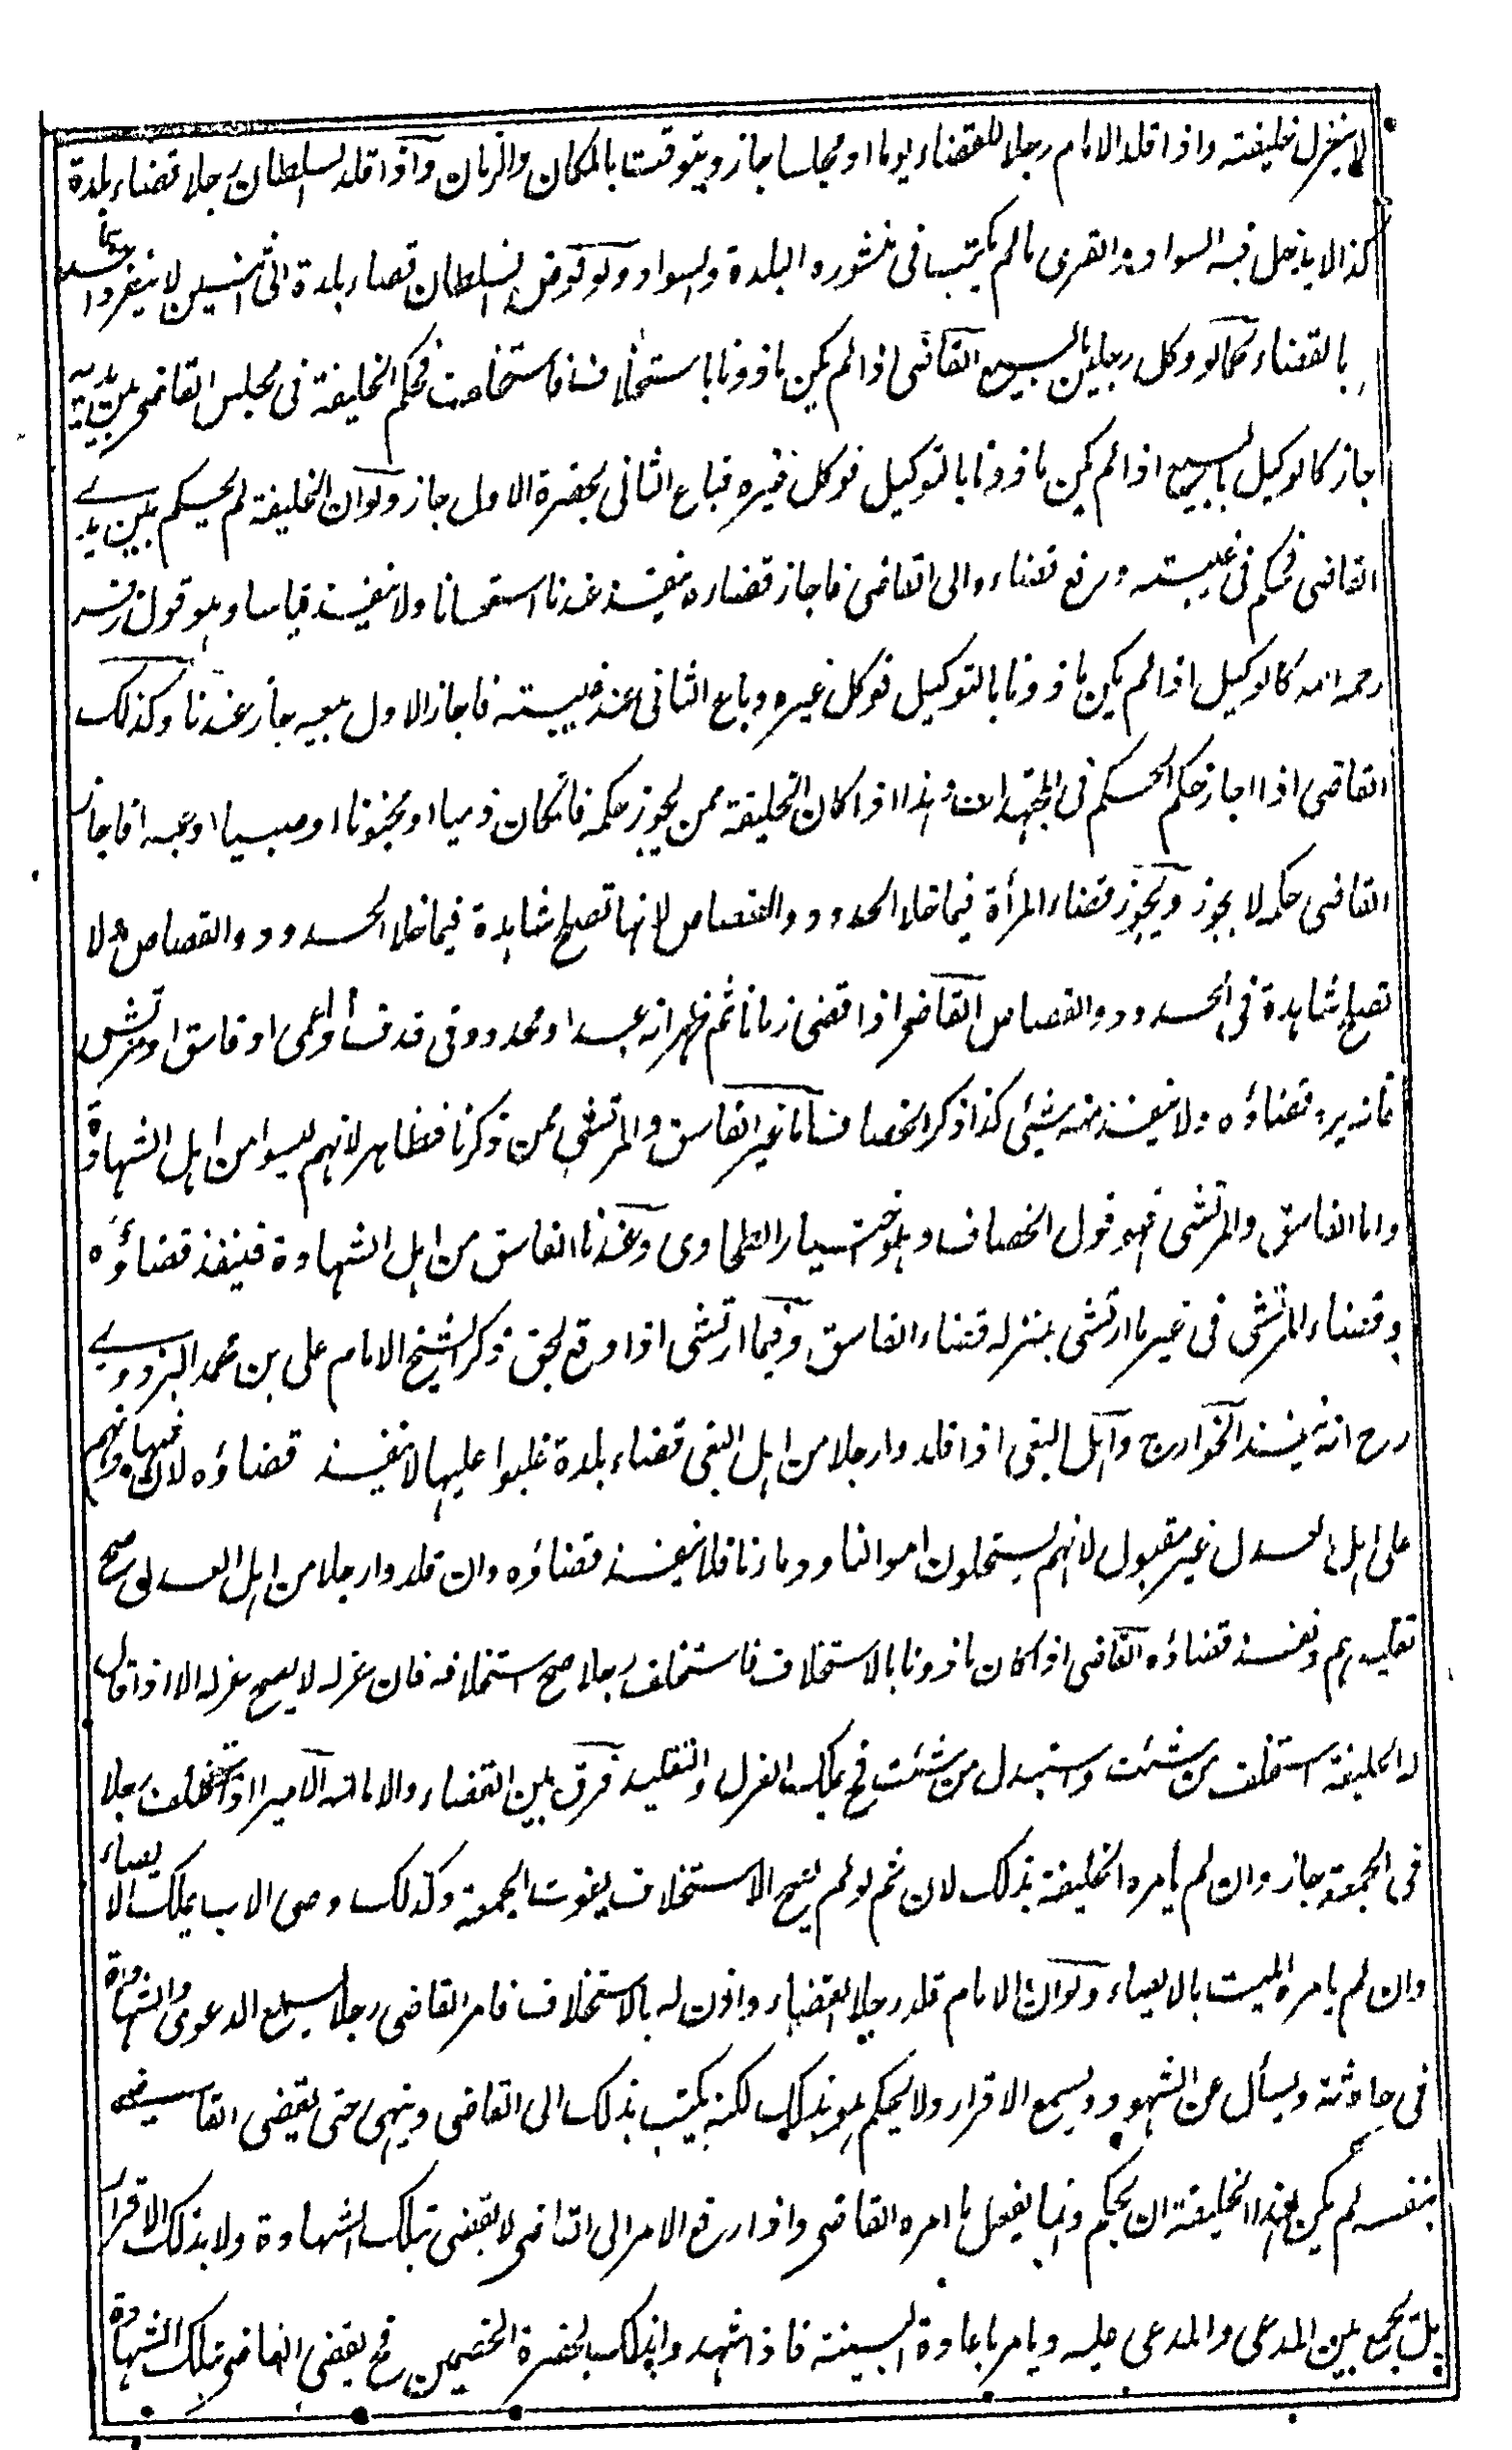 لا ينعزل خليفته واذا قلد الامام رجلا للقضاء يوما او مجلسا جاز ويتوقت بالمكان والزمان واذا قلد السلطان رجلا قضاء بلدة
كذا لا يدخل فيه السواد والقرى ما لم يكتب فى منشوره البلدة والسواد ولو فوض السلطان قضاء بلدة الى اثنين لا ينفرد احدهما
بالقضاء كما لو وكل رجلين بالبيع القاضى اذا لم يكن ماذونا باستخلاف فاستخلف فحكم الخليفة فى مجلس القاضى بين يديه
جاز كالوكيل بالبيع اذا لم يكن ماذونا بالتوكيل فوكل غيره فباع الثانى بحضرة الاول جاز ولو ان الخليفة لم يحكم بين يدى
القاضى فحكم فى غيبته ورفع قضاءه الى القاضى فاجاز قضاءه ينفذ عندنا استحسانا ولا ينفذ قياسا وهو قول زفر
رحمه الله كالوكيل اذا لم يكن ماذونا بالتوكيل فوكل غيره وباع الثانى عند غيبته فاجاز الاول بيعه جاز عندنا وكذلك
القاضى اذا اجاز حكم الحكم فى المجتهدات وهذا اذا كان الخليفة ممن يجوز حكمه فان كان ذميا او مجنونا او صبيا او عبدا فاجاز
القاضى حكمه لا يجوز ويجوز قضاء المرأة فيما خلا الحدود والقصاص لانها تصلح شاهدة فيما خلا الحدود والقصاص ولا
تصلح شاهدة فى الحدود والقصاص القاضى اذا قضى زمانا ثم ظهر انه عبد او محدود فى قذف او اعمى او فاسق او مرتش
فانه يرد قضاؤه ولا ينفذ منه شئى كذا ذكر الخصاف اما غير الفاسق والمرتشى ممن ذكرنا فظاهر لانهم ليسوا من اهل الشهادة
واما الفاسق والمرتشى فهو قول الخصاف وهو اختيار الطحاوى وعندنا الفاسق من اهل الشهادة فينفذ قضاؤه
وقضاء المرتشى فى غير ما ارتشى بمنزله قضاء الفاسق وفيما ارتشى اذا وقع بحق ذكر الشيخ الامام على بن محمد البزدوى
رح انه ينفذ الخوارج واهل البغى اذا قلدوا رجلا من اهل البغى قضاء بلدة غلبوا عليها لا ينفذ قضاؤه لان شهادتهم
على اهل العدل غير مقبول لانهم يستحلون اموالنا ودماءنا فلا ينفذ قضاؤه وان قلدوا رجلا من اهل العدل صح
تقليدهم ونفذ قضاؤه القاضى اذا كان ماذونا بالاستخلاف فاستخلف رجلا صح استخلافه فان عزله لا يصح عزله الا اذا قال
له الخليفة استخلف من شئت واستبدل من شئت فح يملك العزل والتقليد فرق بين القضاء والامامة الامير اذا استخلف رجلا
فى الجمعة جاز وان لم يأمره الخليفة بذلك لان ثم لو لم يصح الاستخلاف يفوت الجمعة وكذلك وصى الاب يملك الايصاء
وان لم يامره الميت بالايصاء ولو ان الامام قلد رجلا القضاء واذن له بالاستخلاف فامر القاضى رجلا ليسمع الدعوى والشهادة
فى حادثة ويسأل عن الشهود ويسمع الاقرار ولا يحكم هو بذلك لكنه يكتب بذلك الى القاضى وينهى حتى يقضى القاضى
بنفسه لم يكن لهذا الخليفة ان يحكم وانما يفعل ما امره القاضى واذا رفع الامر الى القاضى لا يقضى بتلك الشهادة ولا بذلك الاقرار
بل يجمع بين المدعى والمدعى عليه ويامر باعادة البينة فاذا شهدوا بذلك بحضرة الخصمين فح يقضى القاضى بتلك الشهادة